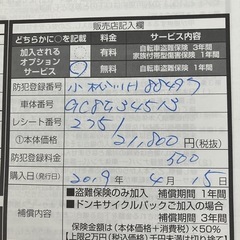 販売店記入欄
どちらかに○を記載 料金 サービス内容
加入される 有料 自転車盗難保険 3年間
オプション
サービス ○ 無料 自転車盗難保険 1年間
防犯登録番号 小松川 88497
車体番号 GC8G34513
レシート番号 2751
①本体価格 21,800円(税抜)
防犯登録料金 500
購入日(発行日) 2019年 4月 15日
■盗難保険のみ加入 補償期間 1年間
■ドンキサイクルパックご加入の場合
補償期間 3年間
保険金額は(本体価格+消費税)×50%